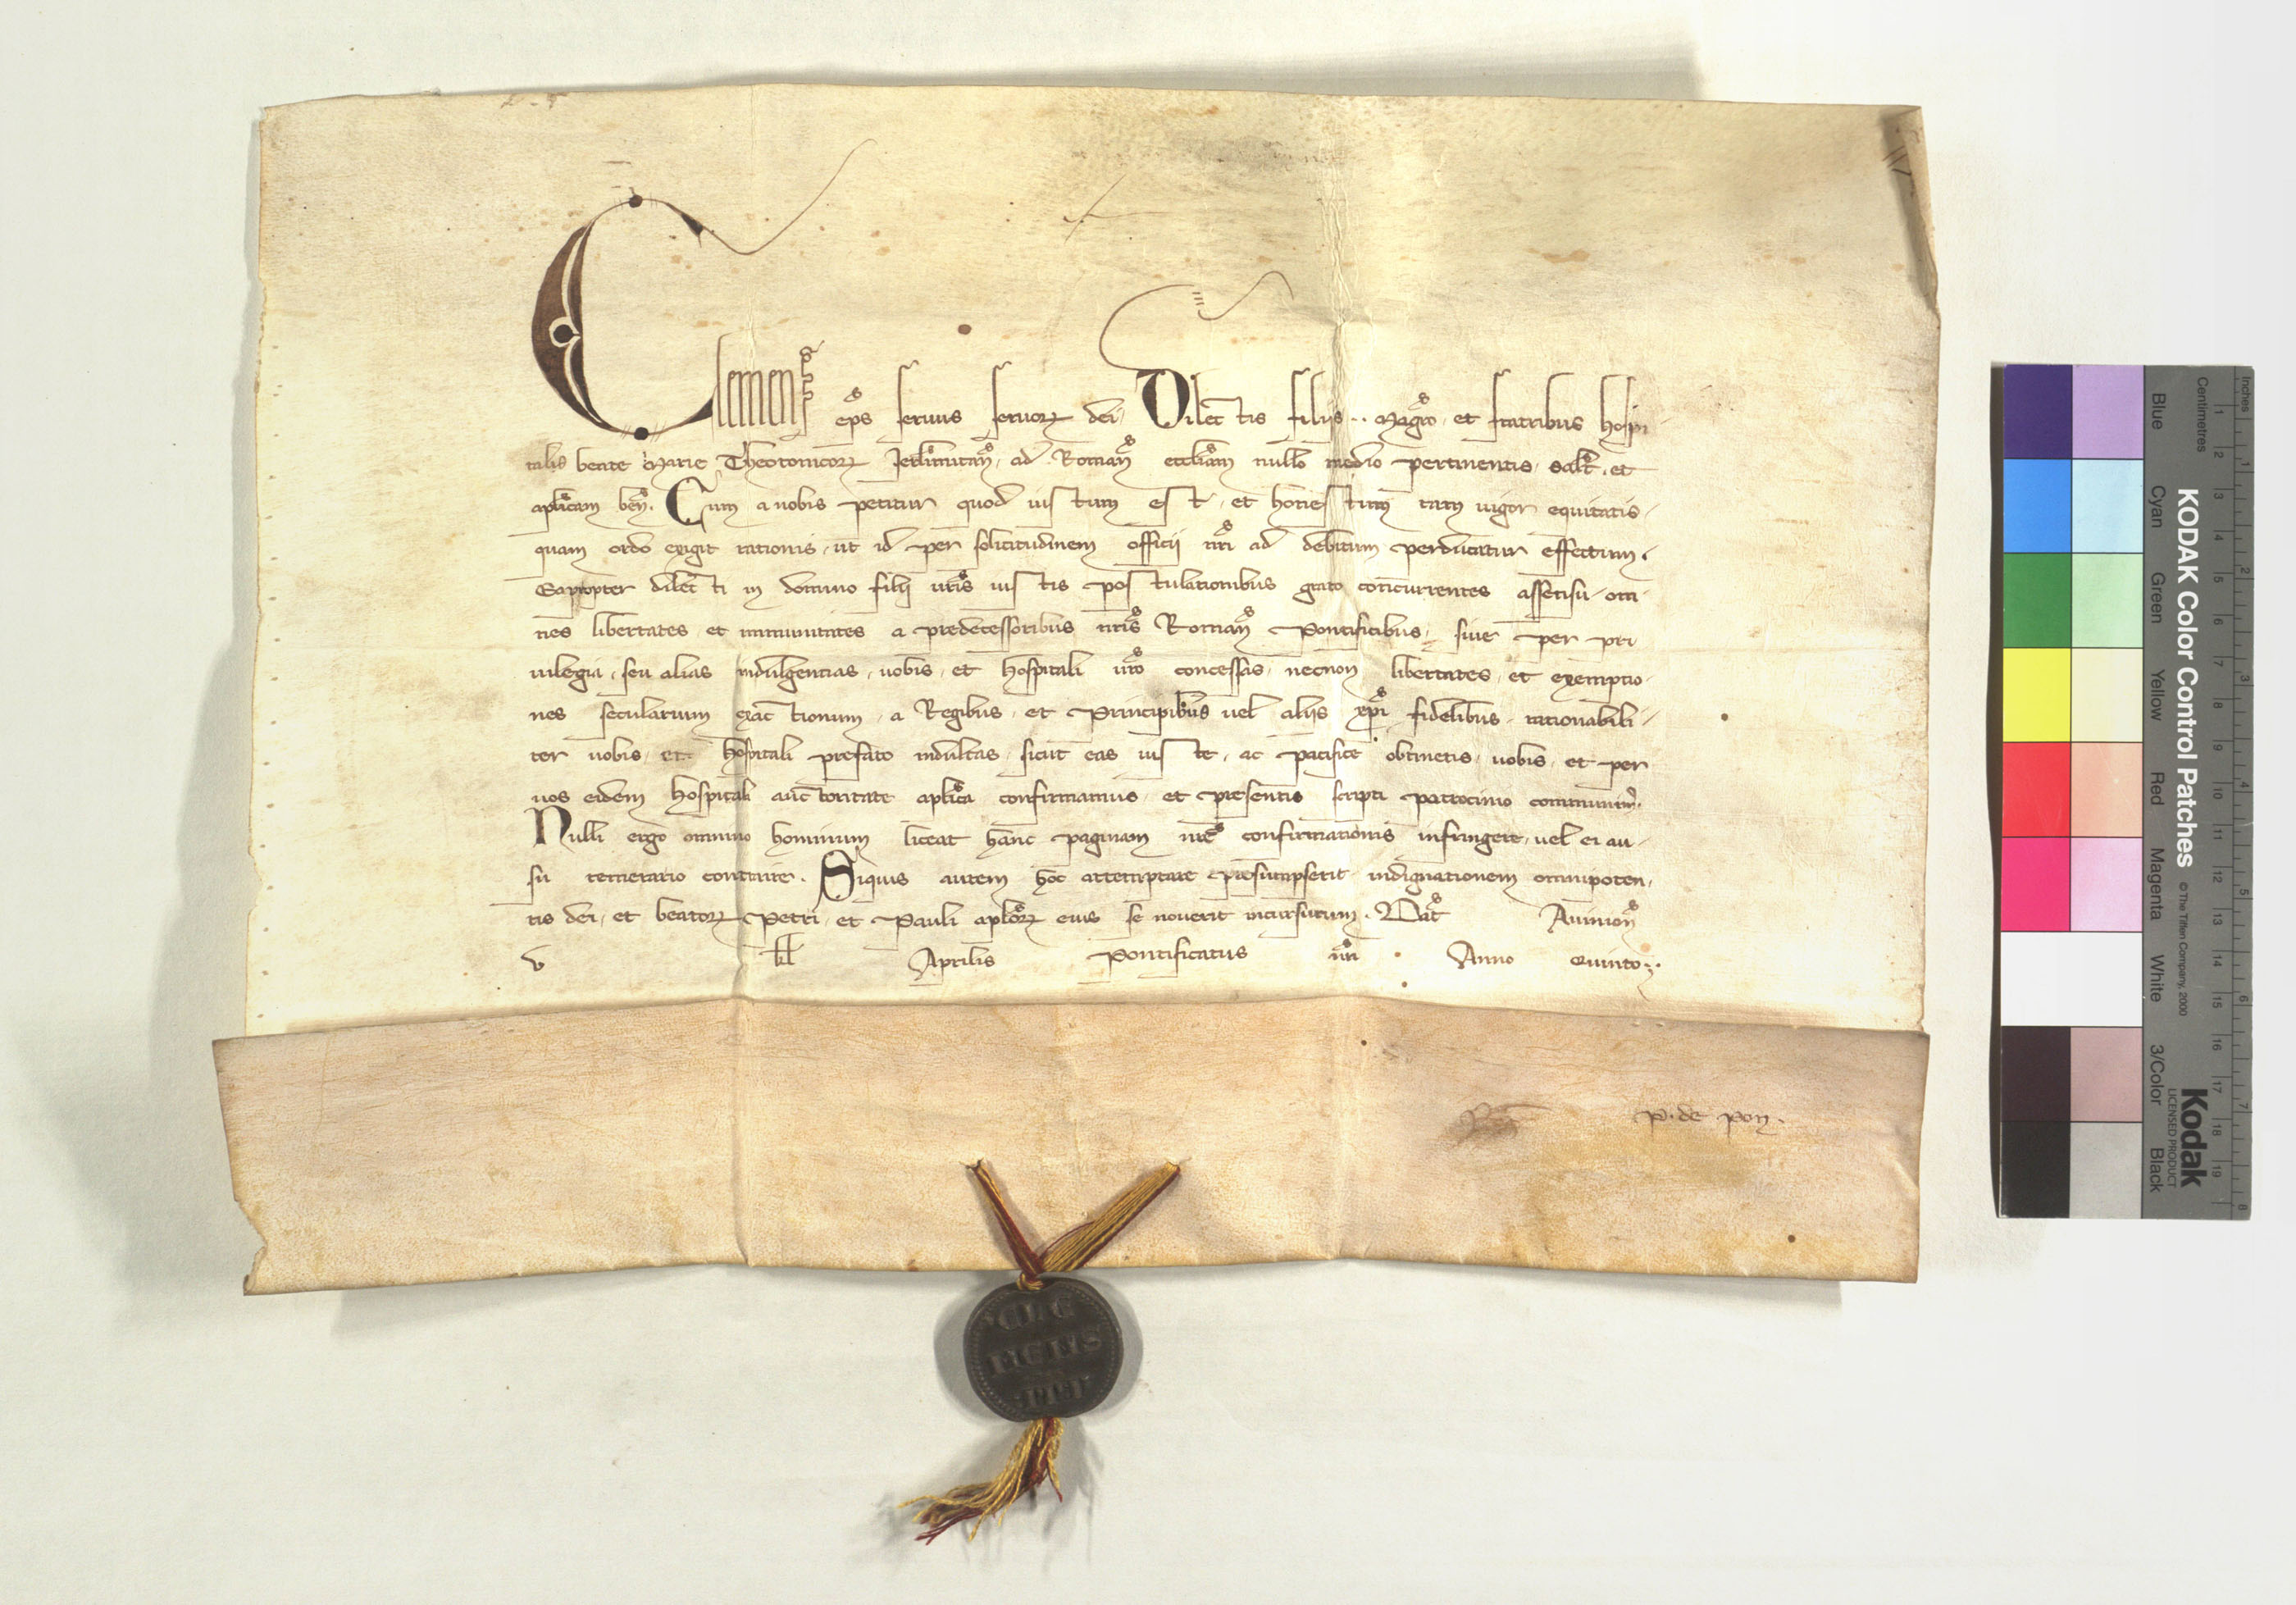 Clemens eps seruus seruorꝝ dei Dilectis filijs .. Magro et fratribus hospi-
talis beate Marie Theotonicorꝝ Jerlimitan, ad Roman ecclesiam nullo medio pertinentis, salt, et
aplicam ben. Cum a nobis petitur quod iustum est, et honestum tam uigor equitatis,
quam ordo exigit rationis, ut id per sollicitudinem officij nri ad debitum perducatur effectum.
Eapropter dilecti in domino filij uris iustis postulationibus grato concurrentes assensu, om-
nes libertates, et immunitates a predecessoribus nris Roman Pontificibus, siue per pri-
uilegia, seu alias indulgentias, uobis, et hospitali uro concessas, necnon libertates, et exemptio-
nes secularium exactionum, a Regibus, et Principibus uel alijs xpi fidelibus, rationabili-
ter uobis, et hospitali prefato indultas, sicut eas iuste, ac pacifice obtinetis, uobis, et per
uos eidem hospitali auctoritate aplica confirmamus, et presentis scripti patrocinio communim.
Nulli ergo omnino hominum liceat hanc paginam nre confirmationis infringere, uel ei au-
su temerario contraire. Siquis autem hoc attemptare presumpserit indignationem omnipoten-
tis dei, et beatorꝝ Petri, et Pauli aplorꝝ eius se nouerit incursurum. Dat Auinion
v kl Aprilis Pontificatus nri Anno Quinto
p. de pon.
CLE
MENS
PP V
KODAK Color Control Patches
© The Tiffen Company, 2000
Kodak
LICENSED PRODUCT
Blue Cyan Green Yellow Red Magenta White 3/Color Black
Inches 1 2 3 4 5 6 7 8
Centimetres 1 2 3 4 5 6 7 8 9 10 11 12 13 14 15 16 17 18 19